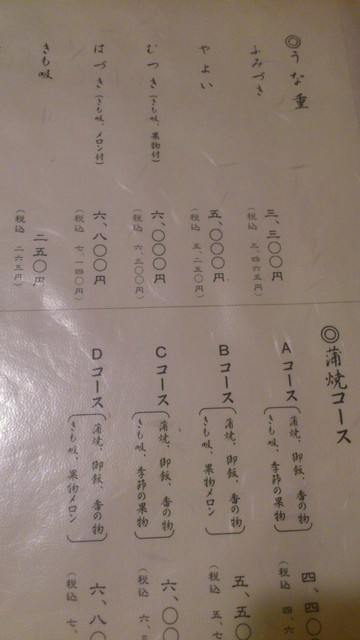 ◎うな重
ふみづき
三、三〇〇円
(税込 三、四六五円)
やよい
五、〇〇〇円
(税込 五、二五〇円)
むつき(きも吸、果物付)
六、〇〇〇円
(税込 六、三〇〇円)
はづき(きも吸、メロン付)
六、八〇〇円
(税込 七、一四〇円)
きも吸
二五〇円
(税込 二六五円)
◎蒲焼コース
Aコース
蒲焼、御飯、香の物
きも吸、季節の果物
四、四〇
(税込 四、六
Bコース
蒲焼、御飯、香の物
きも吸、果物メロン
五、五〇
(税込 五、七
Cコース
蒲焼、御飯、香の物
きも吸、季節の果物
六、〇〇
(税込 六、三
Dコース
蒲焼、御飯、香の物
きも吸、果物メロン
六、八〇
(税込 七、